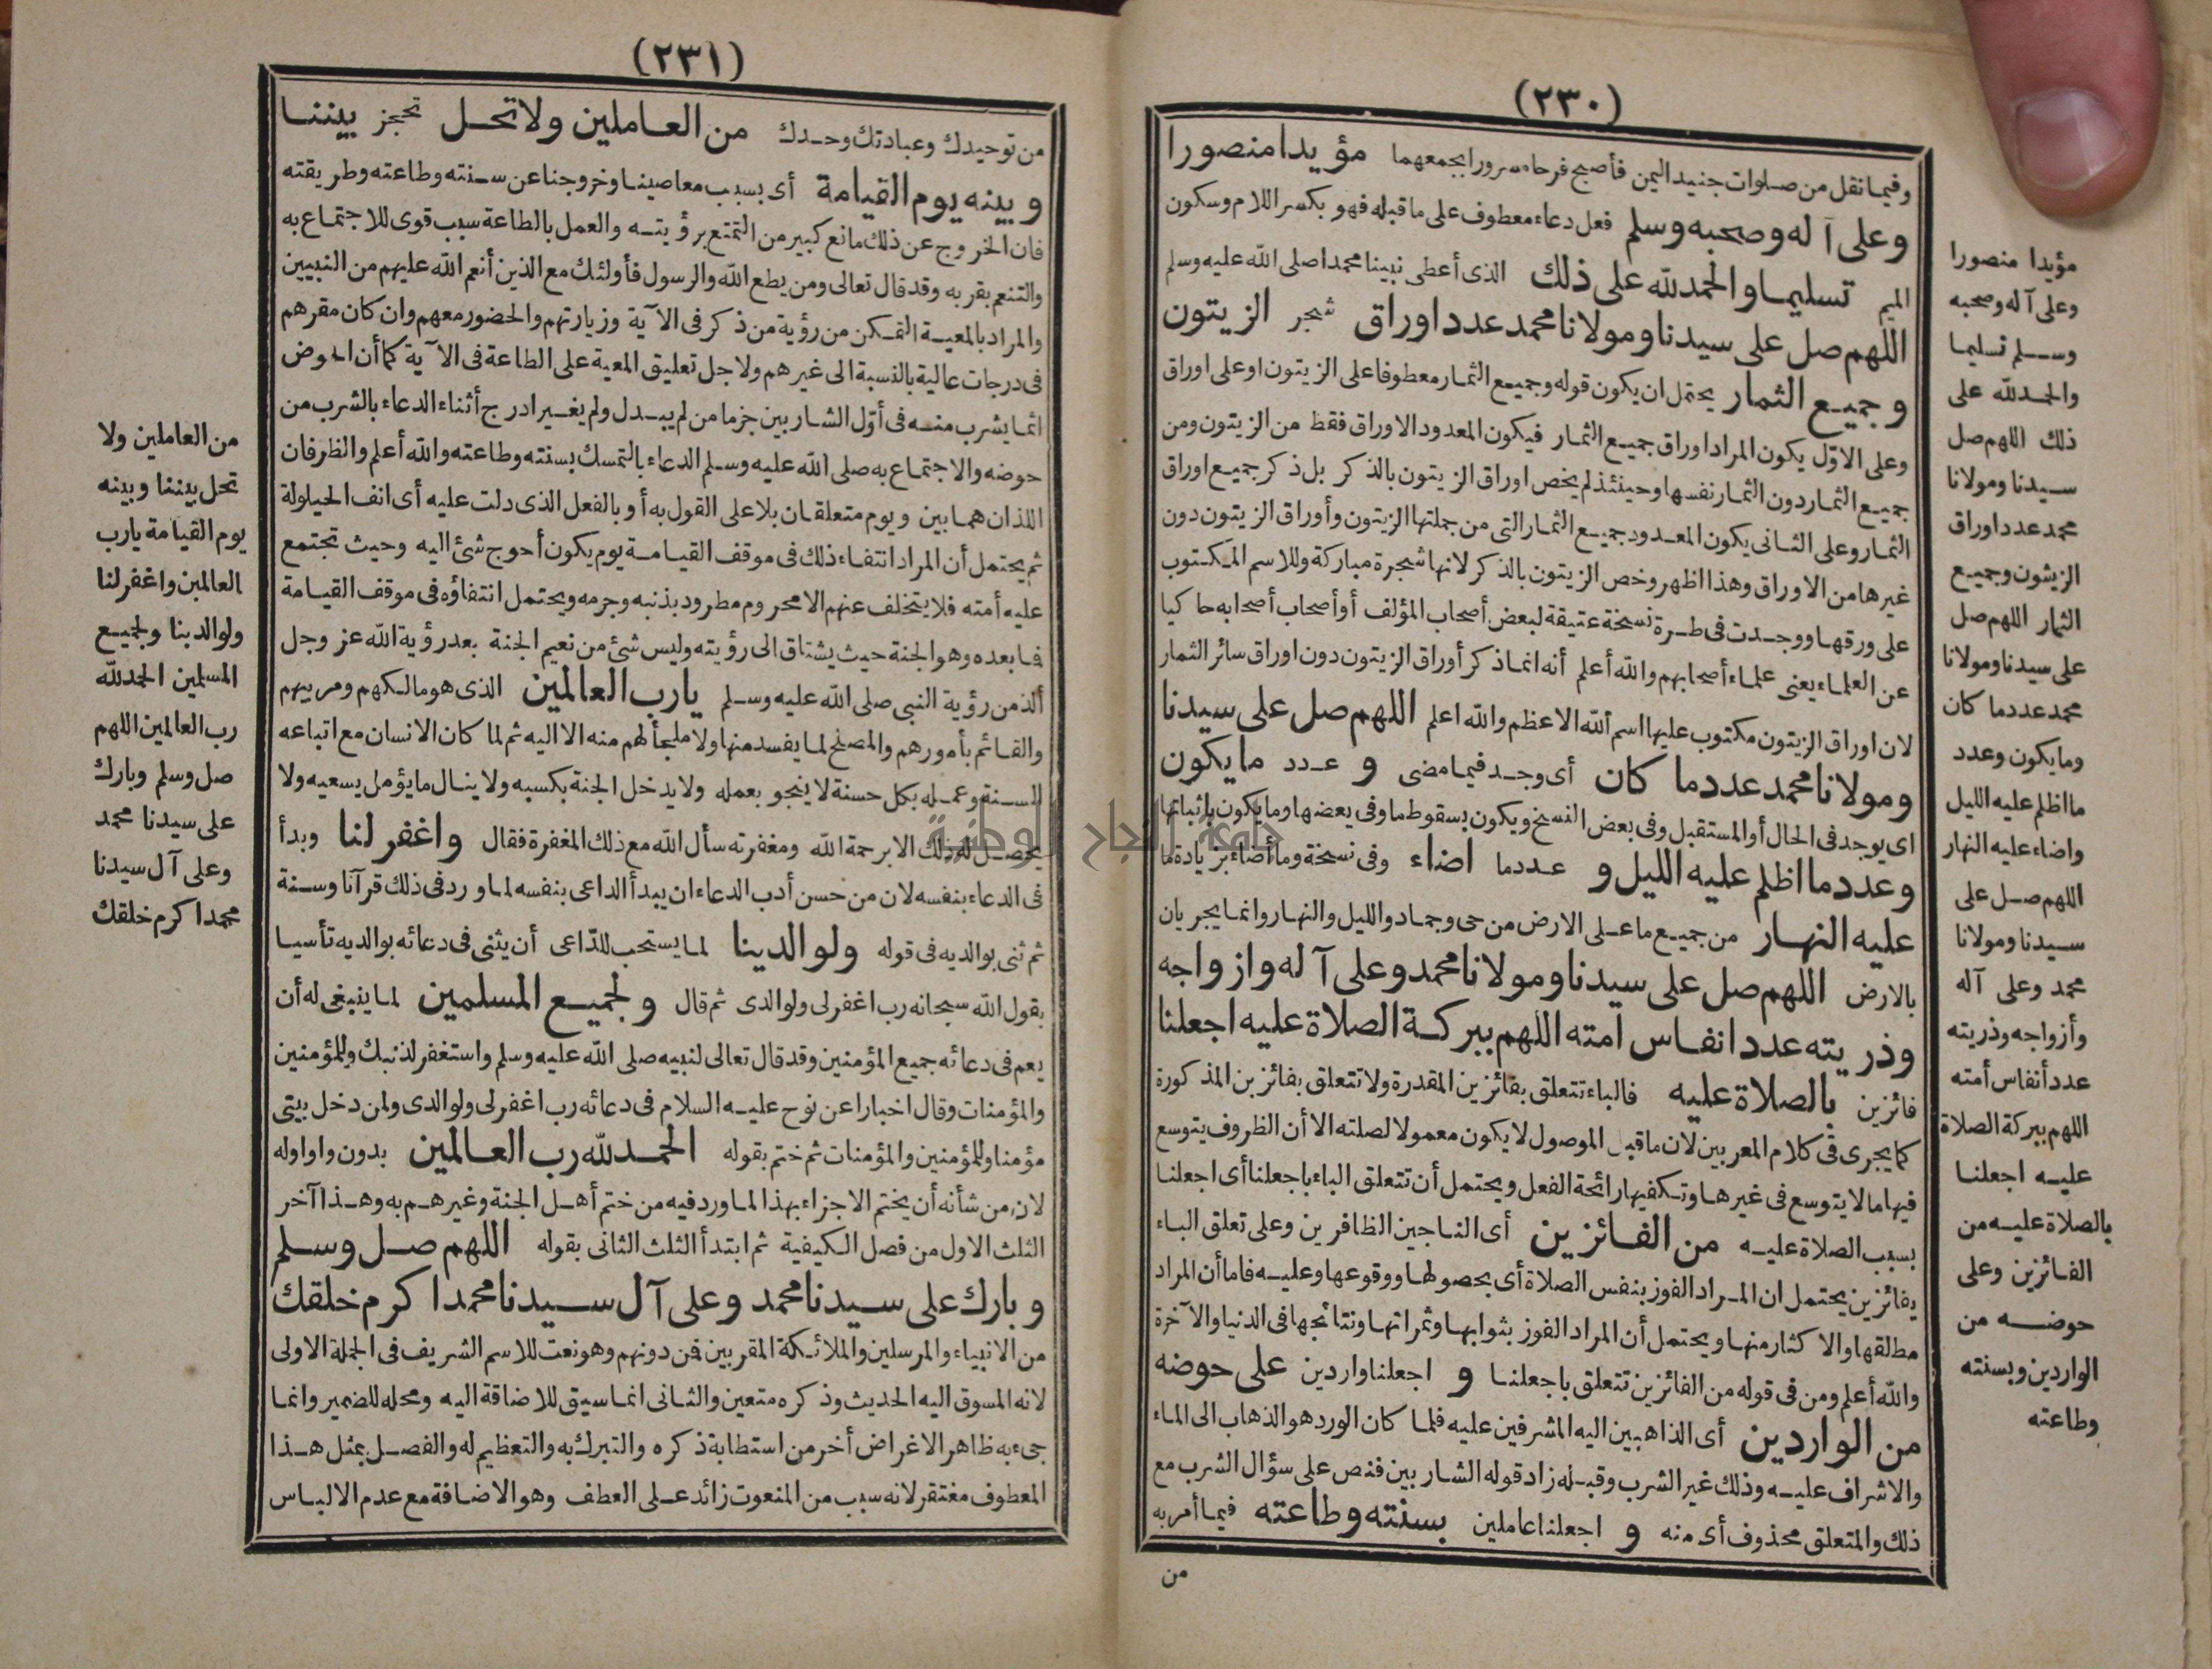 (٢٣٠)
وفيما نقل من صلوات جنيد اليمن فأصبح فرحا مسرورا بجمعهما مؤيدا منصورا
وعلى آله وصحبه وسلم فعل دعاء معطوف على ما قبله فهو بكسر اللام وسكون
الميم تسليما والحمد لله على ذلك الذى أعطى نبينا محمدا صلى الله عليه وسلم
اللهم صل على سيدنا ومولانا محمد عدد اوراق شجر الزيتون
وجميع الثمار يحتمل ان يكون قوله وجميع الثمار معطوفا على الزيتون او على اوراق
وعلى الاول يكون المراد اوراق جميع الثمار فيكون المعدود الاوراق فقط من الزيتون ومن
جميع الثمار دون الثمار نفسها وحينئذ لم يخص اوراق الزيتون بالذكر بل ذكر جميع اوراق
الثمار وعلى الثانى يكون المعدود جميع الثمار التى من جملتها الزيتون وأوراق الزيتون دون
غيرها من الاوراق وهذا اظهر وخص الزيتون بالذكر لانها شجرة مباركة وللاسم المكتوب
على ورقها ووجدت فى طرة نسخة عتيقة لبعض أصحاب المؤلف أو أصحاب أصحابه حاكيا
عن العلماء يعنى علماء أصحابهم والله أعلم أنه انما ذكر أوراق الزيتون دون اوراق سائر الثمار
لان اوراق الزيتون مكتوب عليها اسم الله الاعظم والله اعلم اللهم صل على سيدنا
ومولانا محمد عدد ما كان أى وجد فيما مضى و عدد ما يكون
اى يوجد فى الحال أو المستقبل وفى بعض النسخ ويكون بسقوط ما وفى بعضها وما يكون باثباتها
وعدد ما اظلم عليه الليل و عدد ما اضاء وفى نسخة وما أضاء بزيادة ما
عليه النهار من جميع ما على الارض من حى وجماد والليل والنهار وانما يجريان
بالارض اللهم صل على سيدنا ومولانا محمد وعلى آله وازواجه
وذريته عدد انفاس امته اللهم ببركة الصلاة عليه اجعلنا
فائزين بالصلاة عليه فالباء تتعلق بفائزين المقدرة ولا تتعلق بفائزين المذكورة
كما يجرى فى كلام المعربين لان ما قبل الموصول لا يكون معمولا لصلته الا أن الظروف يتوسع
فيها ما لا يتوسع فى غيرها وتكفيها رائحة الفعل ويحتمل أن تتعلق الباء باجعلنا أى اجعلنا
بسبب الصلاة عليه من الفائزين أى الناجين الظافرين وعلى تعلق الباء
بفائزين يحتمل ان المراد الفوز بنفس الصلاة أى بحصولها ووقوعها وعليه فاما أن المراد
مطلقها والاكثار منها ويحتمل أن المراد الفوز بثوابها وثمراتها ونتائجها فى الدنيا والآخرة
والله أعلم ومن فى قوله من الفائزين تتعلق باجعلنا و اجعلنا واردين على حوضه
من الواردين أى الذاهبين اليه المشرفين عليه فلما كان الورد هو الذهاب الى الماء
والاشراف عليه وذلك غير الشرب وقبله زاد قوله الشاربين فنص على سؤال الشرب مع
ذلك والمتعلق محذوف أى منه و اجعلنا عاملين بسنته وطاعته فيما أمر به
من
مؤيدا منصورا
وعلى آله وصحبه
وسلم تسليما
والحمد لله على
ذلك اللهم صل
سيدنا ومولانا
محمد عدد اوراق
الزيتون وجميع
الثمار اللهم صل
على سيدنا ومولانا
محمد عدد ما كان
وما يكون وعدد
ما اظلم عليه الليل
واضاء عليه النهار
اللهم صل على
سيدنا ومولانا
محمد وعلى آله
وأزواجه وذريته
عدد أنفاس أمته
اللهم ببركة الصلاة
عليه اجعلنا
بالصلاة عليه من
الفائزين وعلى
حوضه من
الواردين وبسنته
وطاعته
(٢٣١)
من توحيدك وعبادتك وحدك من العاملين ولا تحل تحجز بيننا
وبينه يوم القيامة أى بسبب معاصينا وخروجنا عن سنته وطاعته وطريقته
فان الخروج عن ذلك مانع كبير من التمتع برؤيته والعمل بالطاعة سبب قوى للاجتماع به
والتنعم بقربه وقد قال تعالى ومن يطع الله والرسول فأولئك مع الذين أنعم الله عليهم من النبيين
والمراد بالمعية التمكن من رؤية من ذكر فى الآية وزيارتهم والحضور معهم وان كان مقرهم
فى درجات عالية بالنسبة الى غيرهم ولاجل تعليق المعية على الطاعة فى الآية كما أن الحوض
انما يشرب منه فى أول الشاربين جزما من لم يبدل ولم يغير ادرج أثناء الدعاء بالشرب من
حوضه والاجتماع به صلى الله عليه وسلم الدعاء بالتمسك بسنته وطاعته والله أعلم والظرفان
اللذان هما بين ويوم متعلقان بلا على القول به أو بالفعل الذى دلت عليه أى انف الحيلولة
ثم يحتمل أن المراد انتفاء ذلك فى موقف القيامة يوم يكون أحوج شئ اليه وحيث تجتمع
عليه أمته فلا يتخلف عنهم الا محروم مطرود بذنبه وجرمه ويحتمل انتفاؤه فى موقف القيامة
فما بعده وهو الجنة حيث يشتاق الى رؤيته وليس شئ من نعيم الجنة بعد رؤية الله عز وجل
ألذ من رؤية النبى صلى الله عليه وسلم يا رب العالمين الذى هو مالكهم ومربيهم
والقائم بأمورهم والمصلح لما يفسد منها ولا ملجأ لهم منه الا اليه ثم لما كان الانسان مع اتباعه
السنة وعمله بكل حسنة لا ينجو بعمله ولا يدخل الجنة بكسبه ولا ينال ما يؤمل بسعيه ولا
يحصل له ذلك الا برحمة الله ومغفرته سأل الله مع ذلك المغفرة فقال واغفر لنا وبدأ
فى الدعاء بنفسه لان من حسن أدب الدعاء ان يبدأ الداعى بنفسه لما ورد فى ذلك قرآنا وسنة
ثم ثنى بوالديه فى قوله ولوالدينا لما يستحب للداعى أن يثنى فى دعائه بوالديه تأسيا
بقول الله سبحانه رب اغفر لى ولوالدى ثم قال ولجميع المسلمين لما ينبغى له أن
يعم فى دعائه جميع المؤمنين وقد قال تعالى لنبيه صلى الله عليه وسلم واستغفر لذنبك وللمؤمنين
والمؤمنات وقال اخبارا عن نوح عليه السلام فى دعائه رب اغفر لى ولوالدى ولمن دخل بيتى
مؤمنا وللمؤمنين والمؤمنات ثم ختم بقوله الحمد لله رب العالمين بدون واو اوله
لان من شأنه أن يختم الاجزاء بهذا لما ورد فيه من ختم أهل الجنة وغيرهم به وهذا آخر
الثلث الاول من فصل الكيفية ثم ابتدأ الثلث الثانى بقوله اللهم صل وسلم
وبارك على سيدنا محمد وعلى آل سيدنا محمد اكرم خلقك
من الانبياء والمرسلين والملائكة المقربين فمن دونهم وهو نعت للاسم الشريف فى الجملة الاولى
لانه المسوق اليه الحديث وذكره متعين والثانى انما سيق للاضافة اليه ومحله للضمير وانما
جىء به ظاهر الاغراض أخر من استطابة ذكره والتبرك به والتعظيم له والفصل بمثل هذا
المعطوف مغتفر لانه سبب من المنعوت زائد على العطف وهو الاضافة مع عدم الالباس
من العاملين ولا
تحل بيننا وبينه
يوم القيامة يا رب
العالمين واغفر لنا
ولوالدينا ولجميع
المسلمين الحمد لله
رب العالمين اللهم
صل وسلم وبارك
على سيدنا محمد
وعلى آل سيدنا
محمد اكرم خلقك
جامعة النجاح الوطنية